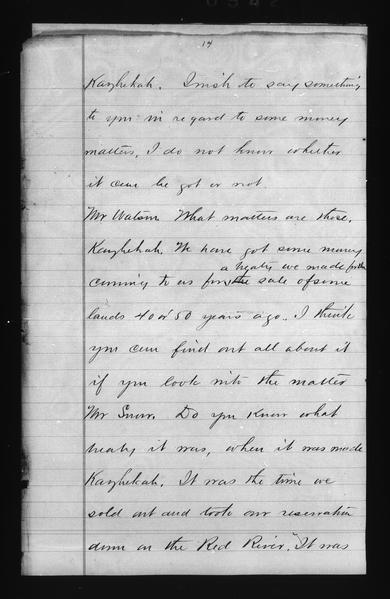 14
Kayhekah. I wish to say something
to you in regard to some money
matters, I do not know whether
it can be got or not.
Mr Watson What matters are those.
Kayhekah. We have got some money
a treaty we made for the
coming to us for the sale of some
lands 40 or 50 years ago. I think
you can find out all about it
if you look into the matter
Mr Snow. Do you know what
treaty it was, when it was made
Kayhekah. It was the time we
sold out and took our reservation
down on the Red River. It was